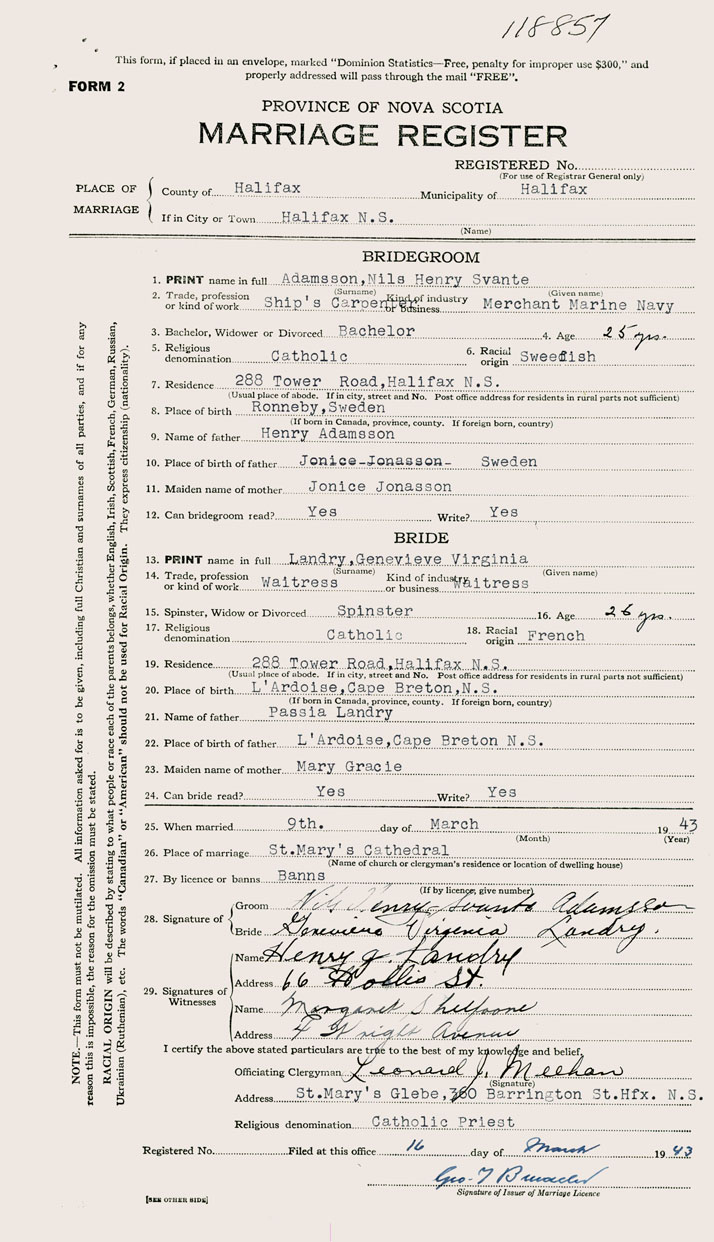 118857
This form, if placed in an envelope, marked "Dominion Statistics—Free, penalty for improper use $300," and
properly addressed will pass through the mail "FREE".
FORM 2
PROVINCE OF NOVA SCOTIA
MARRIAGE REGISTER
REGISTERED No.
(For use of Registrar General only)
PLACE OF MARRIAGE
County of Halifax Municipality of Halifax
If in City or Town Halifax N.S.
(Name)
BRIDEGROOM
1. PRINT name in full Adamsson,Nils Henry Svante
(Surname) (Given name)
2. Trade, profession or kind of work Ship's Carpenter Kind of industry or business Merchant Marine Navy
3. Bachelor, Widower or Divorced Bachelor 4. Age 25 yrs.
5. Religious denomination Catholic 6. Racial origin Sweedish
7. Residence 288 Tower Road,Halifax N.S.
(Usual place of abode. If in city, street and No. Post office address for residents in rural parts not sufficient)
8. Place of birth Ronneby,Sweden
(If born in Canada, province, county. If foreign born, country)
9. Name of father Henry Adamsson
10. Place of birth of father Jonice Jonasson Sweden
11. Maiden name of mother Jonice Jonasson
12. Can bridegroom read? Yes Write? Yes
BRIDE
13. PRINT name in full Landry,Genevieve Virginia
(Surname) (Given name)
14. Trade, profession or kind of work Waitress Kind of industry or business Waitress
15. Spinster, Widow or Divorced Spinster 16. Age 26 yrs.
17. Religious denomination Catholic 18. Racial origin French
19. Residence 288 Tower Road,Halifax N.S.
(Usual place of abode. If in city, street and No. Post office address for residents in rural parts not sufficient)
20. Place of birth L'Ardoise,Cape Breton,N.S.
(If born in Canada, province, county. If foreign born, country)
21. Name of father Passia Landry
22. Place of birth of father L'Ardoise,Cape Breton N.S.
23. Maiden name of mother Mary Gracie
24. Can bride read? Yes Write? Yes
25. When married 9th. day of March 19 43
(Month) (Year)
26. Place of marriage St.Mary's Cathedral
(Name of church or clergyman's residence or location of dwelling house)
27. By licence or banns Banns
(If by licence, give number)
28. Signature of
Groom Nils Henry Svante Adamsson
Bride Genevieve Virginia Landry.
29. Signatures of Witnesses
Name Henry J. Landry
Address 66 Hollis St.
Name Margaret
Address 4 Wright Avenue
I certify the above stated particulars are true to the best of my knowledge and belief,
Officiating Clergyman Leonard J. Meehan
(Signature)
Address St.Mary's Glebe,360 Barrington St.Hfx. N.S.
Religious denomination Catholic Priest
Registered No. Filed at this office 16 day of March 19 43
Geo. T
Signature of Issuer of Marriage Licence
[SEE OTHER SIDE]
NOTE.—This form must not be mutilated. All information asked for is to be given, including full Christian and surnames of all parties, and if for any
reason this is impossible, the reason for the omission must be stated.
RACIAL ORIGIN will be described by stating to what people or race each of the parents belongs, whether English, Irish, Scottish, French, German, Russian,
Ukrainian (Ruthenian), etc. The words "Canadian" or "American" should not be used for Racial Origin. They express citizenship (nationality).